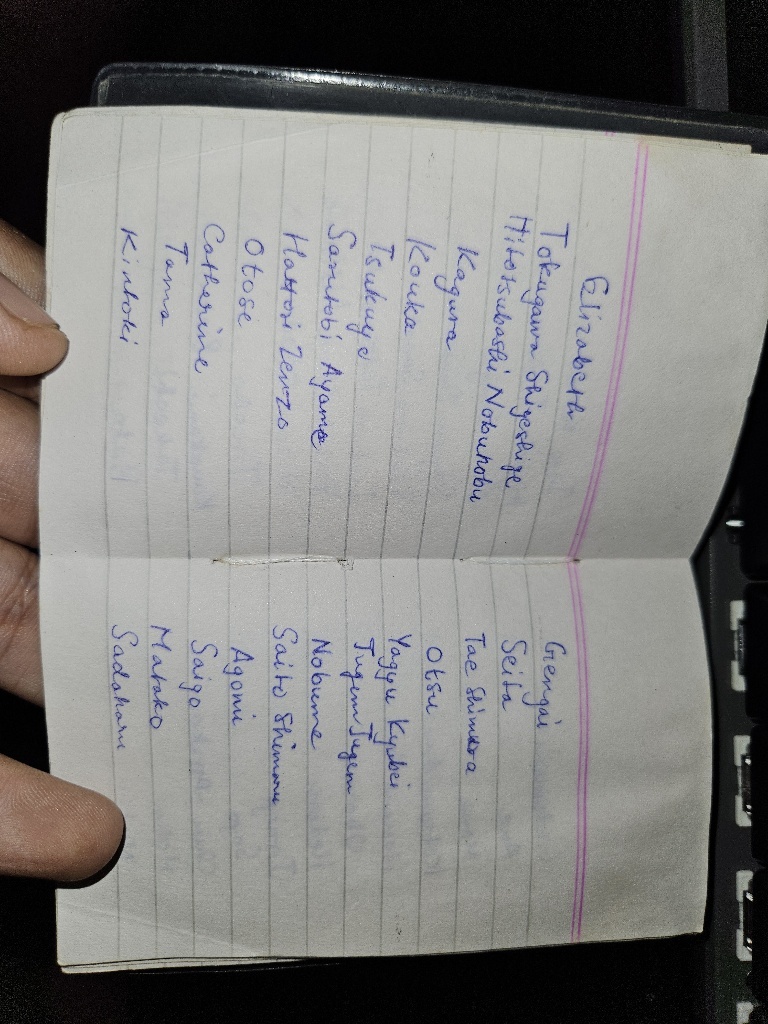 Elizabeth
Tokugawa Shigeshige
Hitotsubashi Nobunobu
Kagura
Kouka
Tsukuyo
Sarutobi Ayame
Hattori Zenzo
Otose
Catherine
Tama
Kintoki
Gengai
Seita
Tae Shimura
Otsu
Yagyu Kyubei
Jugem Jugem
Nobume
Saito Shimaru
Agomi
Saigo
Matako
Sadaharu